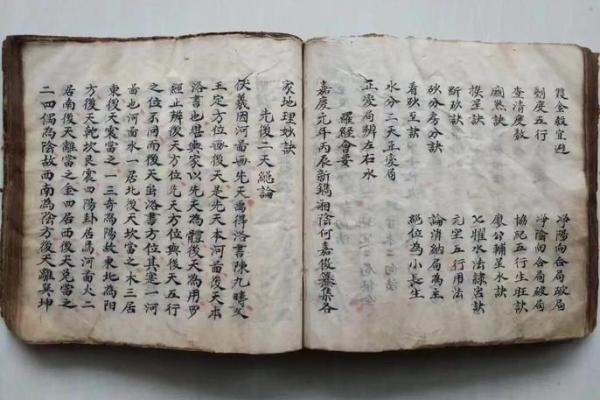 金殺宜避 淨陽向合局破局
刻度五行 淨陰向合局破局
查清度數 協紀五行生旺訣
訣 廖公輔星水訣
撥星訣 七曜水法祿宮訣
斷砂訣 元空五行用法
砂分房分訣 論消納局為主
看砂呈訣 絕位為小長生
水分二天正変局
正変局辨左右水
羅經會要
嘉慶元年丙辰新鐫湘陰何嘉俊纂集各
家地理妙訣
先後二天總論
伏羲因河圖畫先天禹得洛書陳九疇文
王定方位畫後天是先天本河圖後天本
洛書也堪輿家以先天為體後天為用罗
經止辨後天方位先天方位與後天五行
之位不同而後天為洛書方位其寔一河
圖也河圖水一居北後天坎當之木三居
東後天震當之一三奇為陽故東北為陽
方後天乾坎艮震四陽卦居焉河圖火二
居南後天離當之金四居西後天兌當之
二四偶為陰故西南為陰方後天離巽坤